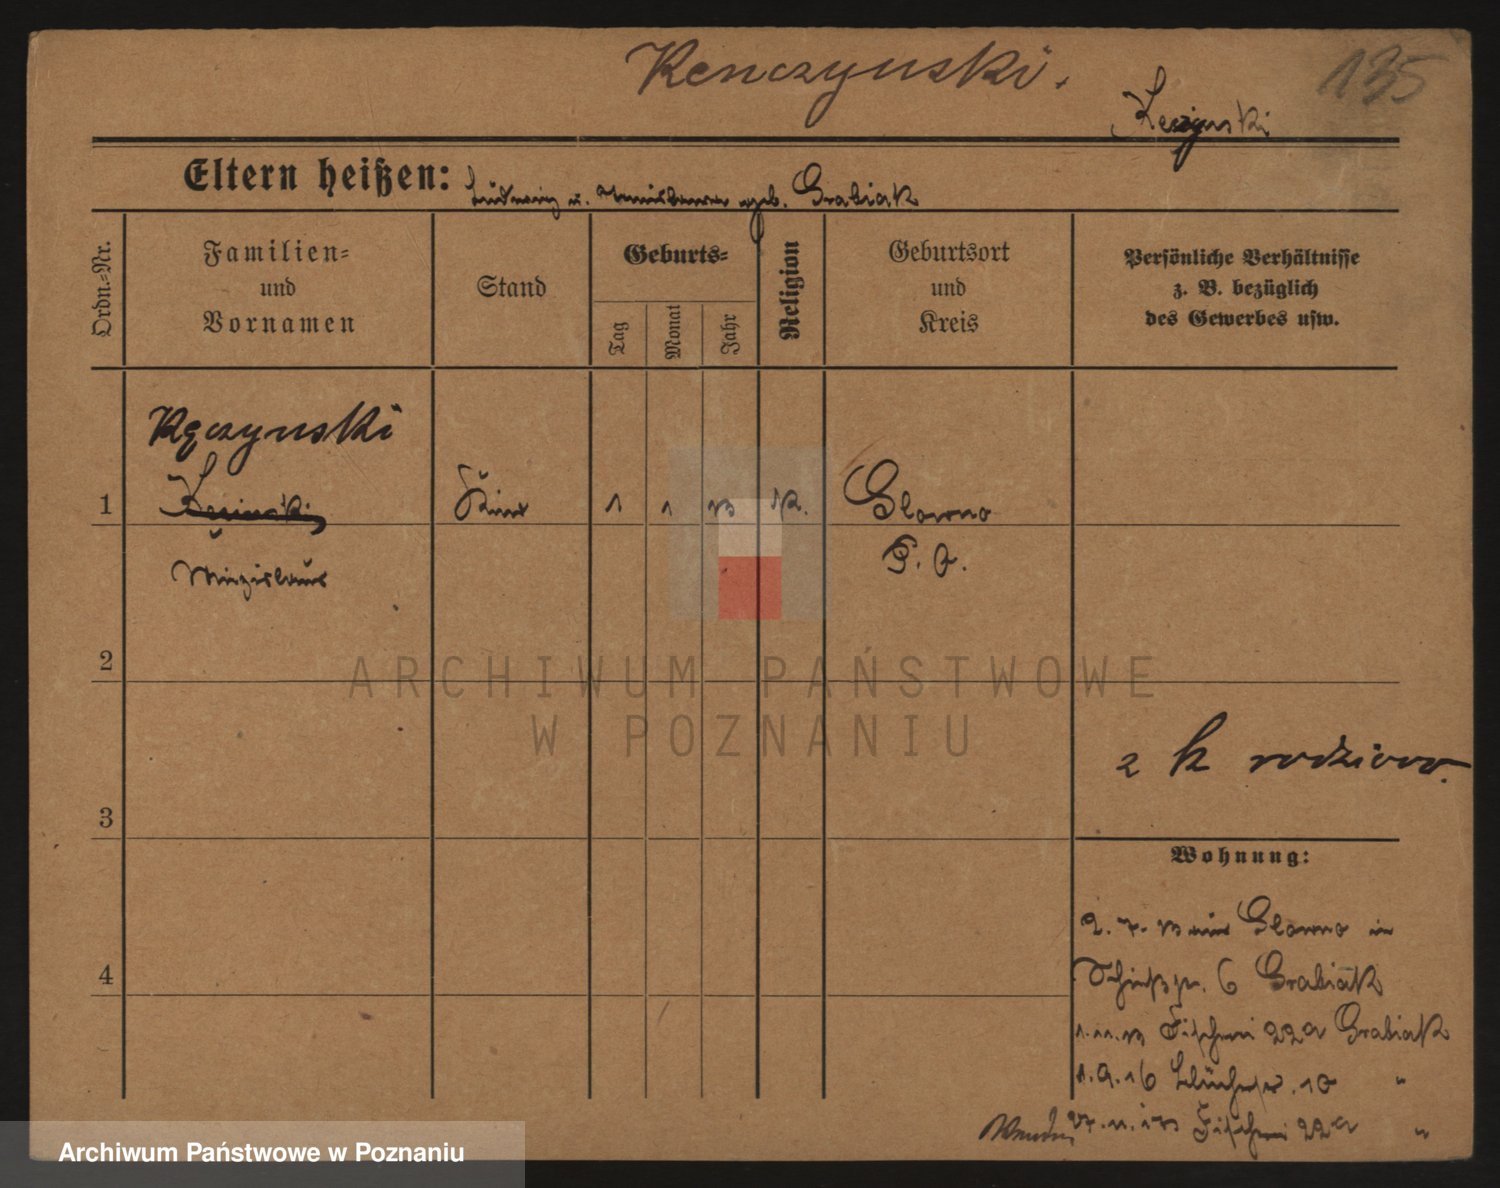 Kenczynski.
135
Kęzynski
Eltern heißen: Ludwig u. geb. Grabiak
Ordn.-Nr.
Familien-
und
Vornamen
Stand
Geburts-
Tag
Monat
Jahr
Religion
Geburtsort
und
Kreis
Persönliche Verhältnisse
z. B. bezüglich
des Gewerbes usw.
Kęczynski
1 Kind 1 1 13 K. Glowno
Miezislaus P. O.
2
ARCHIWUM PAŃSTWOWE
W POZNANIU
z k rodziców.
3
Wohnung:
2. 7. 13 aus Glowno in
6 Grabiak
4
1.11.13 Fischerei 22a Grabiak
1.9.16 10 "
27.11. Fischerei 22a "
Archiwum Państwowe w Poznaniu